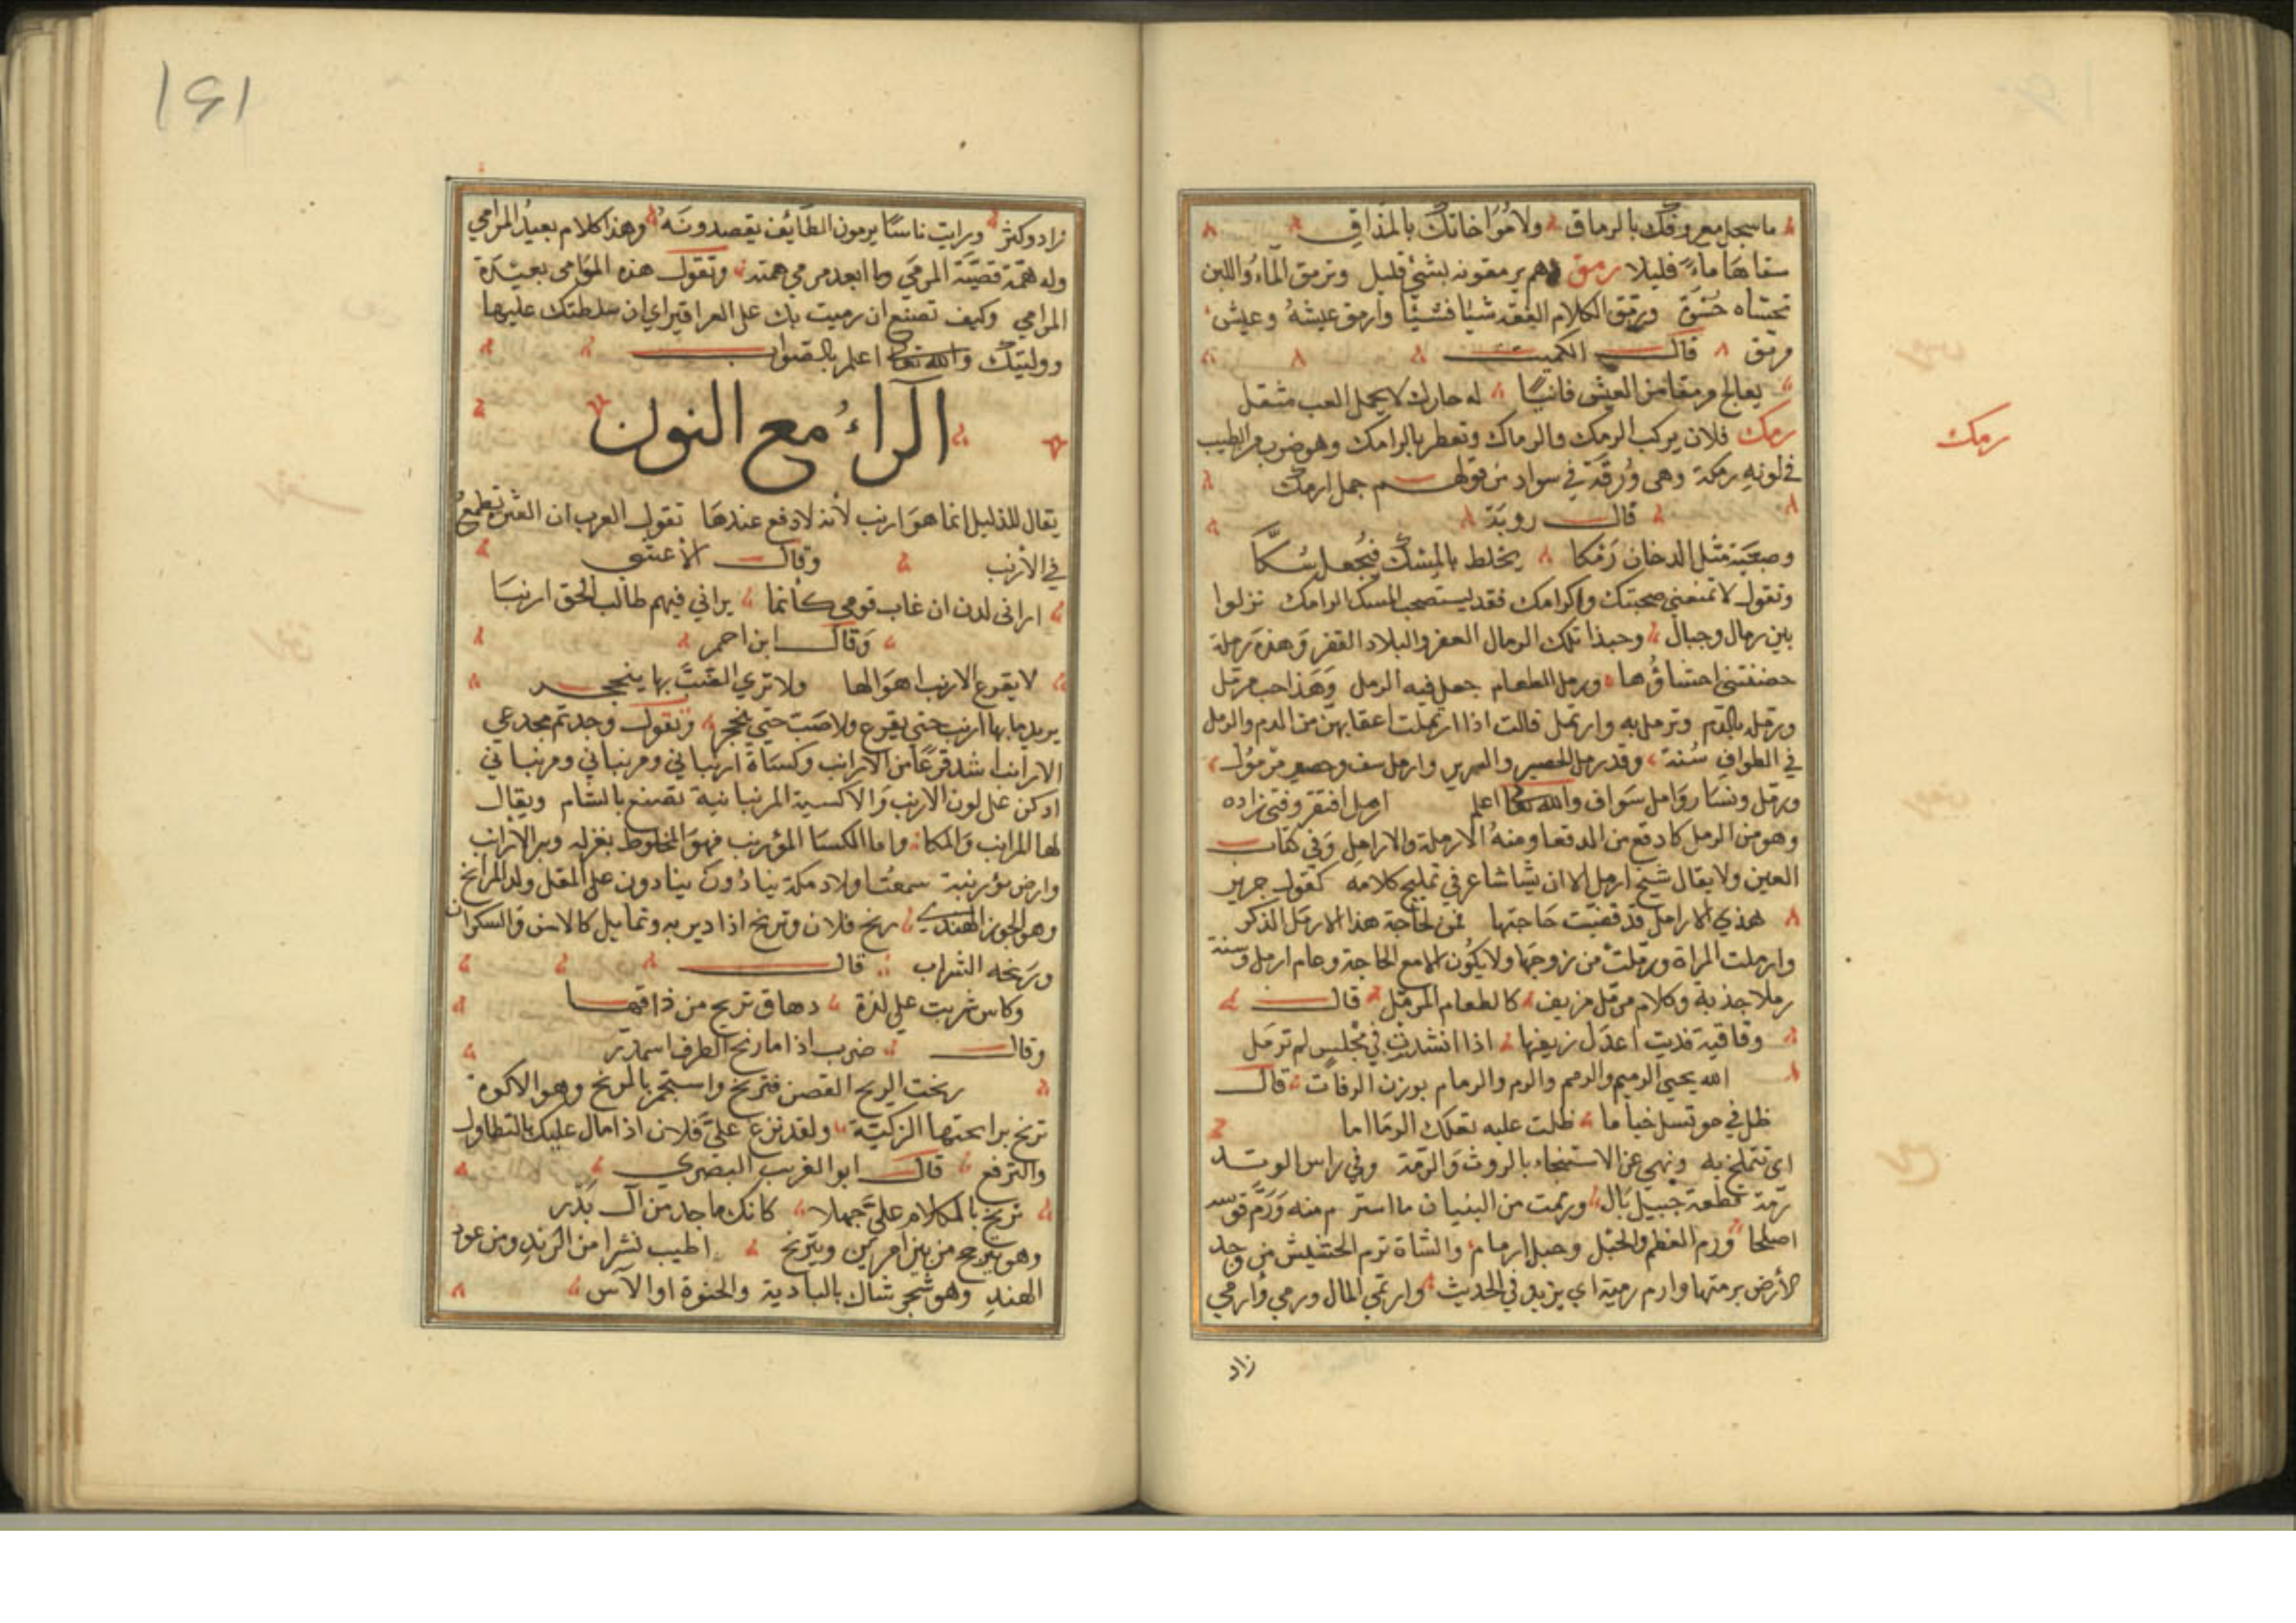 ما سجل معروفك بالرماق ولا مؤاخاتك بالمذاق
سقاها ماء قليلا رمق وهم يرمقونه بشئ قليل وترمق الماء واللبن
تحساه حسوة ورمق الكلام الفقه شيئا فشيئا وارمق عيشه وعيش
رمق قال الكميت
يعالج رمقا من العيش فانيا له حارك لا يحمل العب مثقل
رمك فلان يركب الرمك والرماك وتعطر بالرامك وهو ضرب من الطيب
في لونه رمكة وهى ورقة في سواد من قولهم جمل ارمك
قال روبة
يخلط بالمسك فيجعل سكا
وتقول لا تمنعنى صحبتك واكرامك فقد يستصحب المسك الرامك نزلوا
بين رمال وجبال وحبذا تلك الرمال العفر والبلاد القفر وهذه رملة
حضنتنى احشاؤها ورمل الطعام جعل فيه الرمل وهذا حب مرمل
ورمله بالدم وترمل به وارتمل قالت اذا ارتملت اعقابهن من الدم والرمل
في الطواف سنة وقد رمل الحصير والسرير وارمل سف وحصير مرمول
ورمل ونسا روامل سواف والله تعا اعلم ارمل افتقر وفنى زاده
وهو من الرمل كادقع من الدقعا ومنه الارملة والارامل وفي كتاب
العين ولا يقال شيخ ارمل الا ان يشا شاعر في تمليح كلامه كقول جرير
هذي الارامل قد قضيت حاجتها فمن لحاجة هذا الارمل الذكر
وارملت المراة ورملت من زوجها ولا يكون الا مع الحاجة وعام ارمل وسنة
رملا جذبة وكلام مرمل مزيف كالطعام المرمل قال
وقافية قديت اعدل زيغها اذا انشدت في مجلس لم ترمل
الله يحيى الرميم والرمم والرم والرمام بوزن الرفات قال
ظلت عليه تعلك الرماما
اى تتملح به ونهى عن الاستنجاء بالروث والرمة وفي راس الوتد
رمة قطعة حبيل بال ورممت من البنيان ما استرم منه ورم قوسه
اصلحها ورم العظم والحبل وحبل ارمام والشاة ترم الحشيش من وجه
الأرض برمتها وارم رمية اي يزيد في الحديث وارتمي المال ورمي وأرمي
زاد
رمك
١٤١
زاد وكثر ورايت ناسا يرمون الطائف يقصدونه وهذا كلام بعيد المرامي
وله همة قصية المرمى وما ابعد مرمي همته وتقول هذه الموامى بعيدة
المرامي وكيف تصنع ان رميت بك على العراقين اي ان سلطتك عليها
ووليتك والله تعا اعلم بالصواب
الراء مع النون
يقال للذليل انما هو ارنب لأنه لا دفع عندها تقول العرب ان القبرة تطمع
في الأرنب وقال الأعشى
اراني لدن ان غاب قومي كأنما يراني فيهم طالب الحق ارنبا
وقال ابن احمر
لا يفزع الارنب اهوالها ولا تري الضب بها ينجحر
يريد ما بها ارنب حتى يفزع ولا ضب حتى ينجحر وتقول وجدتم مجدعي
الارانب اشد فزعا من الارانب وكساة ارنباني ومرنباني ومرنباني
ادكن على لون الارنب والاكسية المرنبانية تصنع بالشام ويقال
لها المرانب واما الكسا المؤرنب فهو المخلوط بغزله وبر الارانب
وارض مؤرنبة سمعت اولاد مكة ينادون على المقل ولد المرانح
وهو الجوز الهندي رنح فلان وترنح اذا دير به وتمايل والسكران
ورنحه الشراب قال
وكاس شربت على لذة دهاق ترنح من ذاقها
وقال ضرب اذا ما رنح الطرف اسمدر
رنحت الريح الغصن فترنح واستجمر بالمرنح وهو الالوة
ترنح برايحتها الزكية ولقد ترنح علي فلان اذا مال عليك بالتطاول
والترفع قال ابو الغريب البصري
ترنح بالكلام علي جهلا كانك ماجد من آل بدر
وهو يترجح من بين امرين ويترنح اطيب نشرا من الرند ومن عود
الهند وهو شجر شاك بالبادية والحنوة او الآس